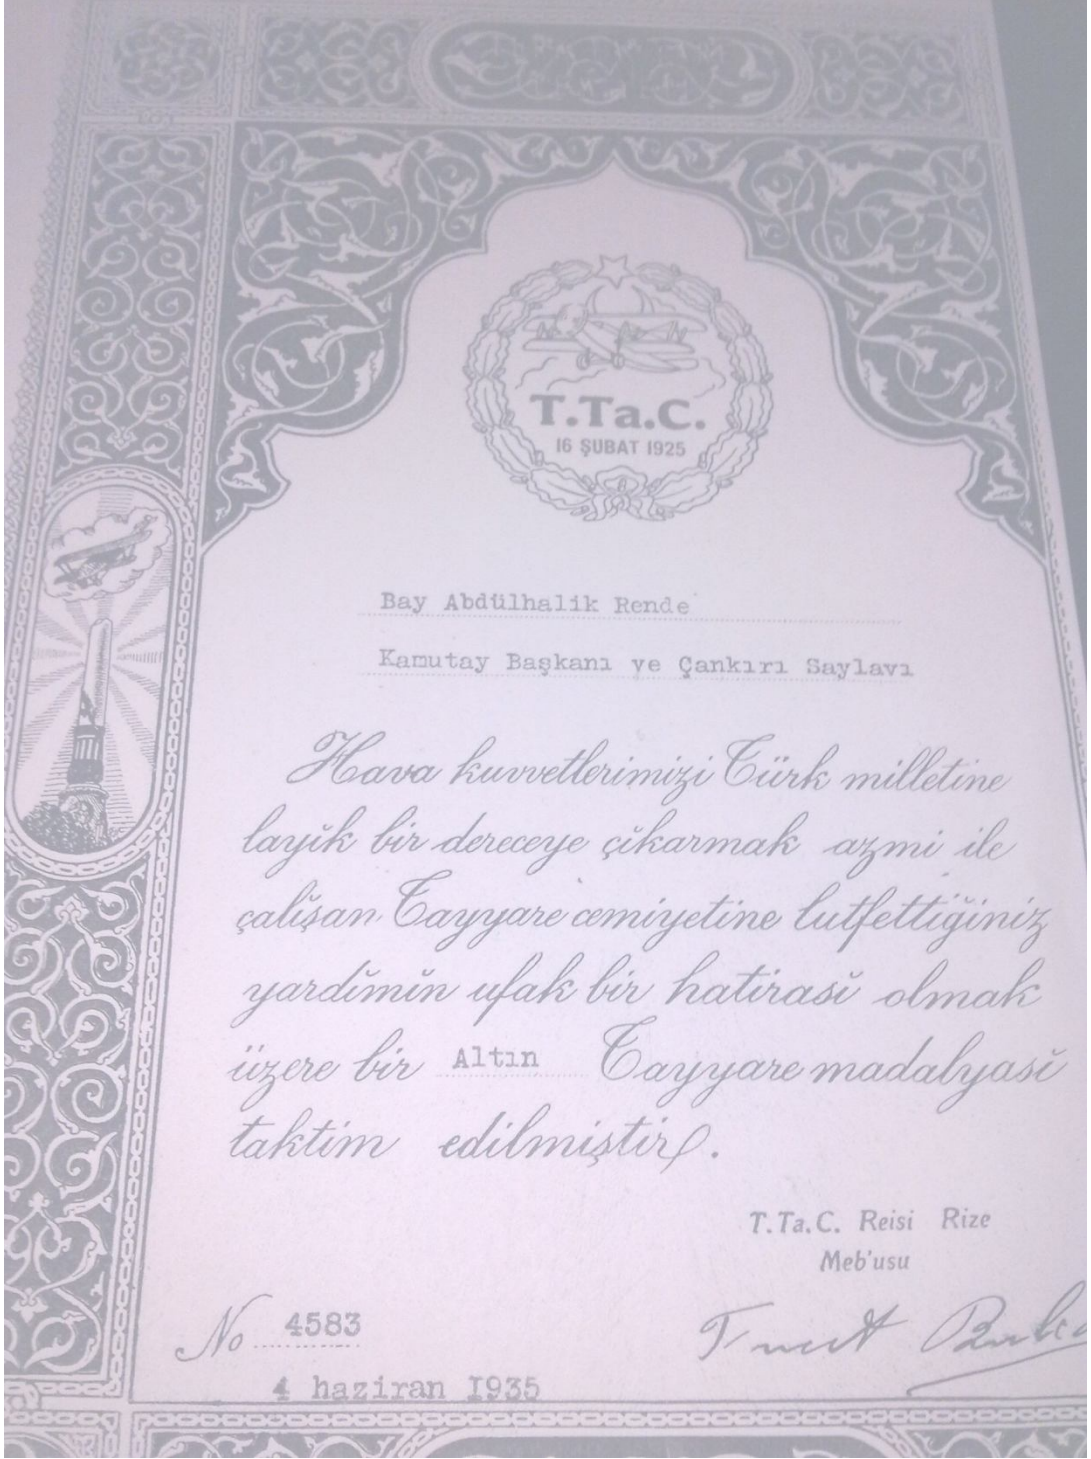 T.Ta.C.
16 ŞUBAT 1925
Bay Abdülhalik Rende
Kamutay Başkanı ve Çankırı Saylavı
Hava kuvvetlerimizi Türk milletine
layĭk bir dereceye çĭkarmak azmi ile
çalĭşan Tayyare cemiyetine lutfettiğiniz
yardĭmĭn ufak bir hatĭrasĭ olmak
üzere bir Altın Tayyare madalyasĭ
taktim edilmiştir.
T.Ta.C. Reisi Rize
Meb'usu
No 4583
4 haziran 1935